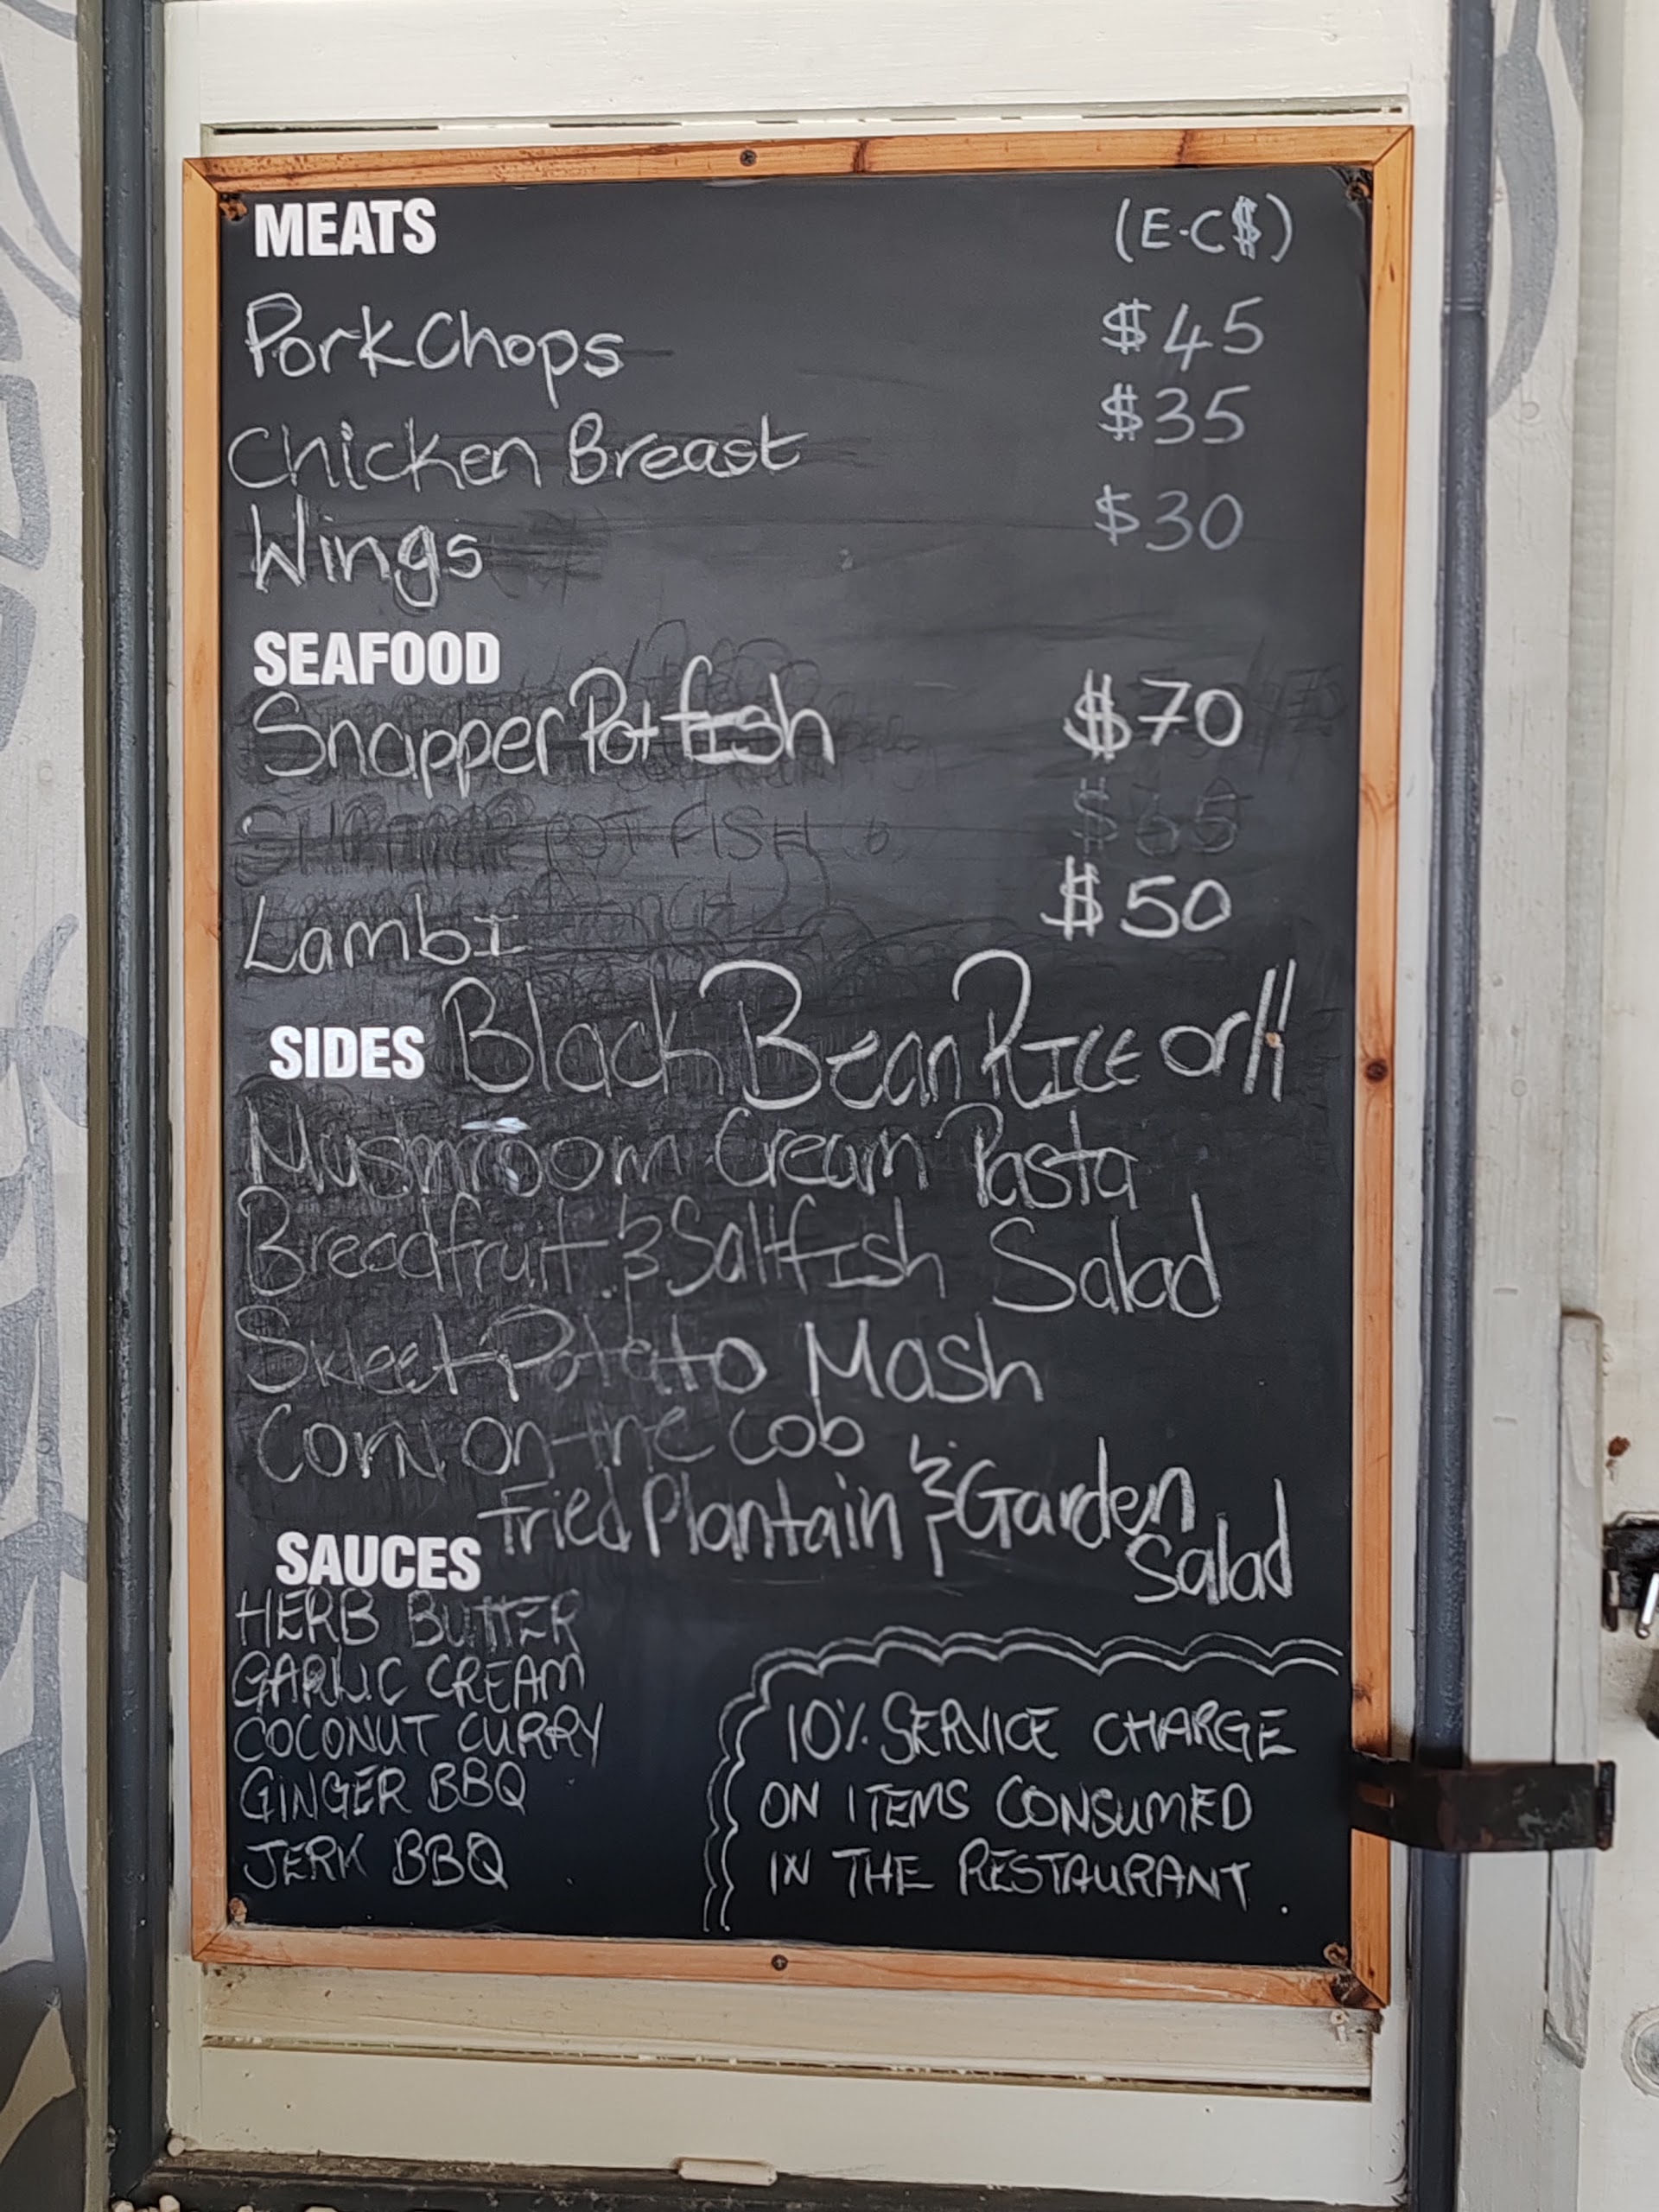 MEATS (E.C$)
Pork Chops $45
Chicken Breast $35
Wings $30
SEAFOOD
Snapper Pot fish $70
POT FISH $65
LambI $50
SIDES Black Bean RICE or//
Mushroom Cream Pasta
Breadfruit & Saltfish Salad
Sweet Potato Mash
Corn on the Cob
Fried Plantain & Garden
Salad
SAUCES
HERB BUTTER
GARLIC CREAM
COCONUT CURRY
GINGER BBQ
JERK BBQ
10% SERVICE CHARGE
ON ITEMS CONSUMED
IN THE RESTAURANT.